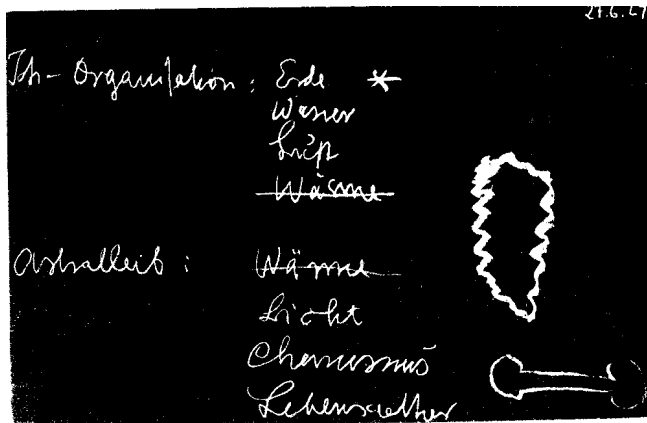 27.6.24
Ich-Organisation: Erde
Wasser
Luft
Wärme
Astralleib: Wärme
Licht
Chemismus
Lebensaether